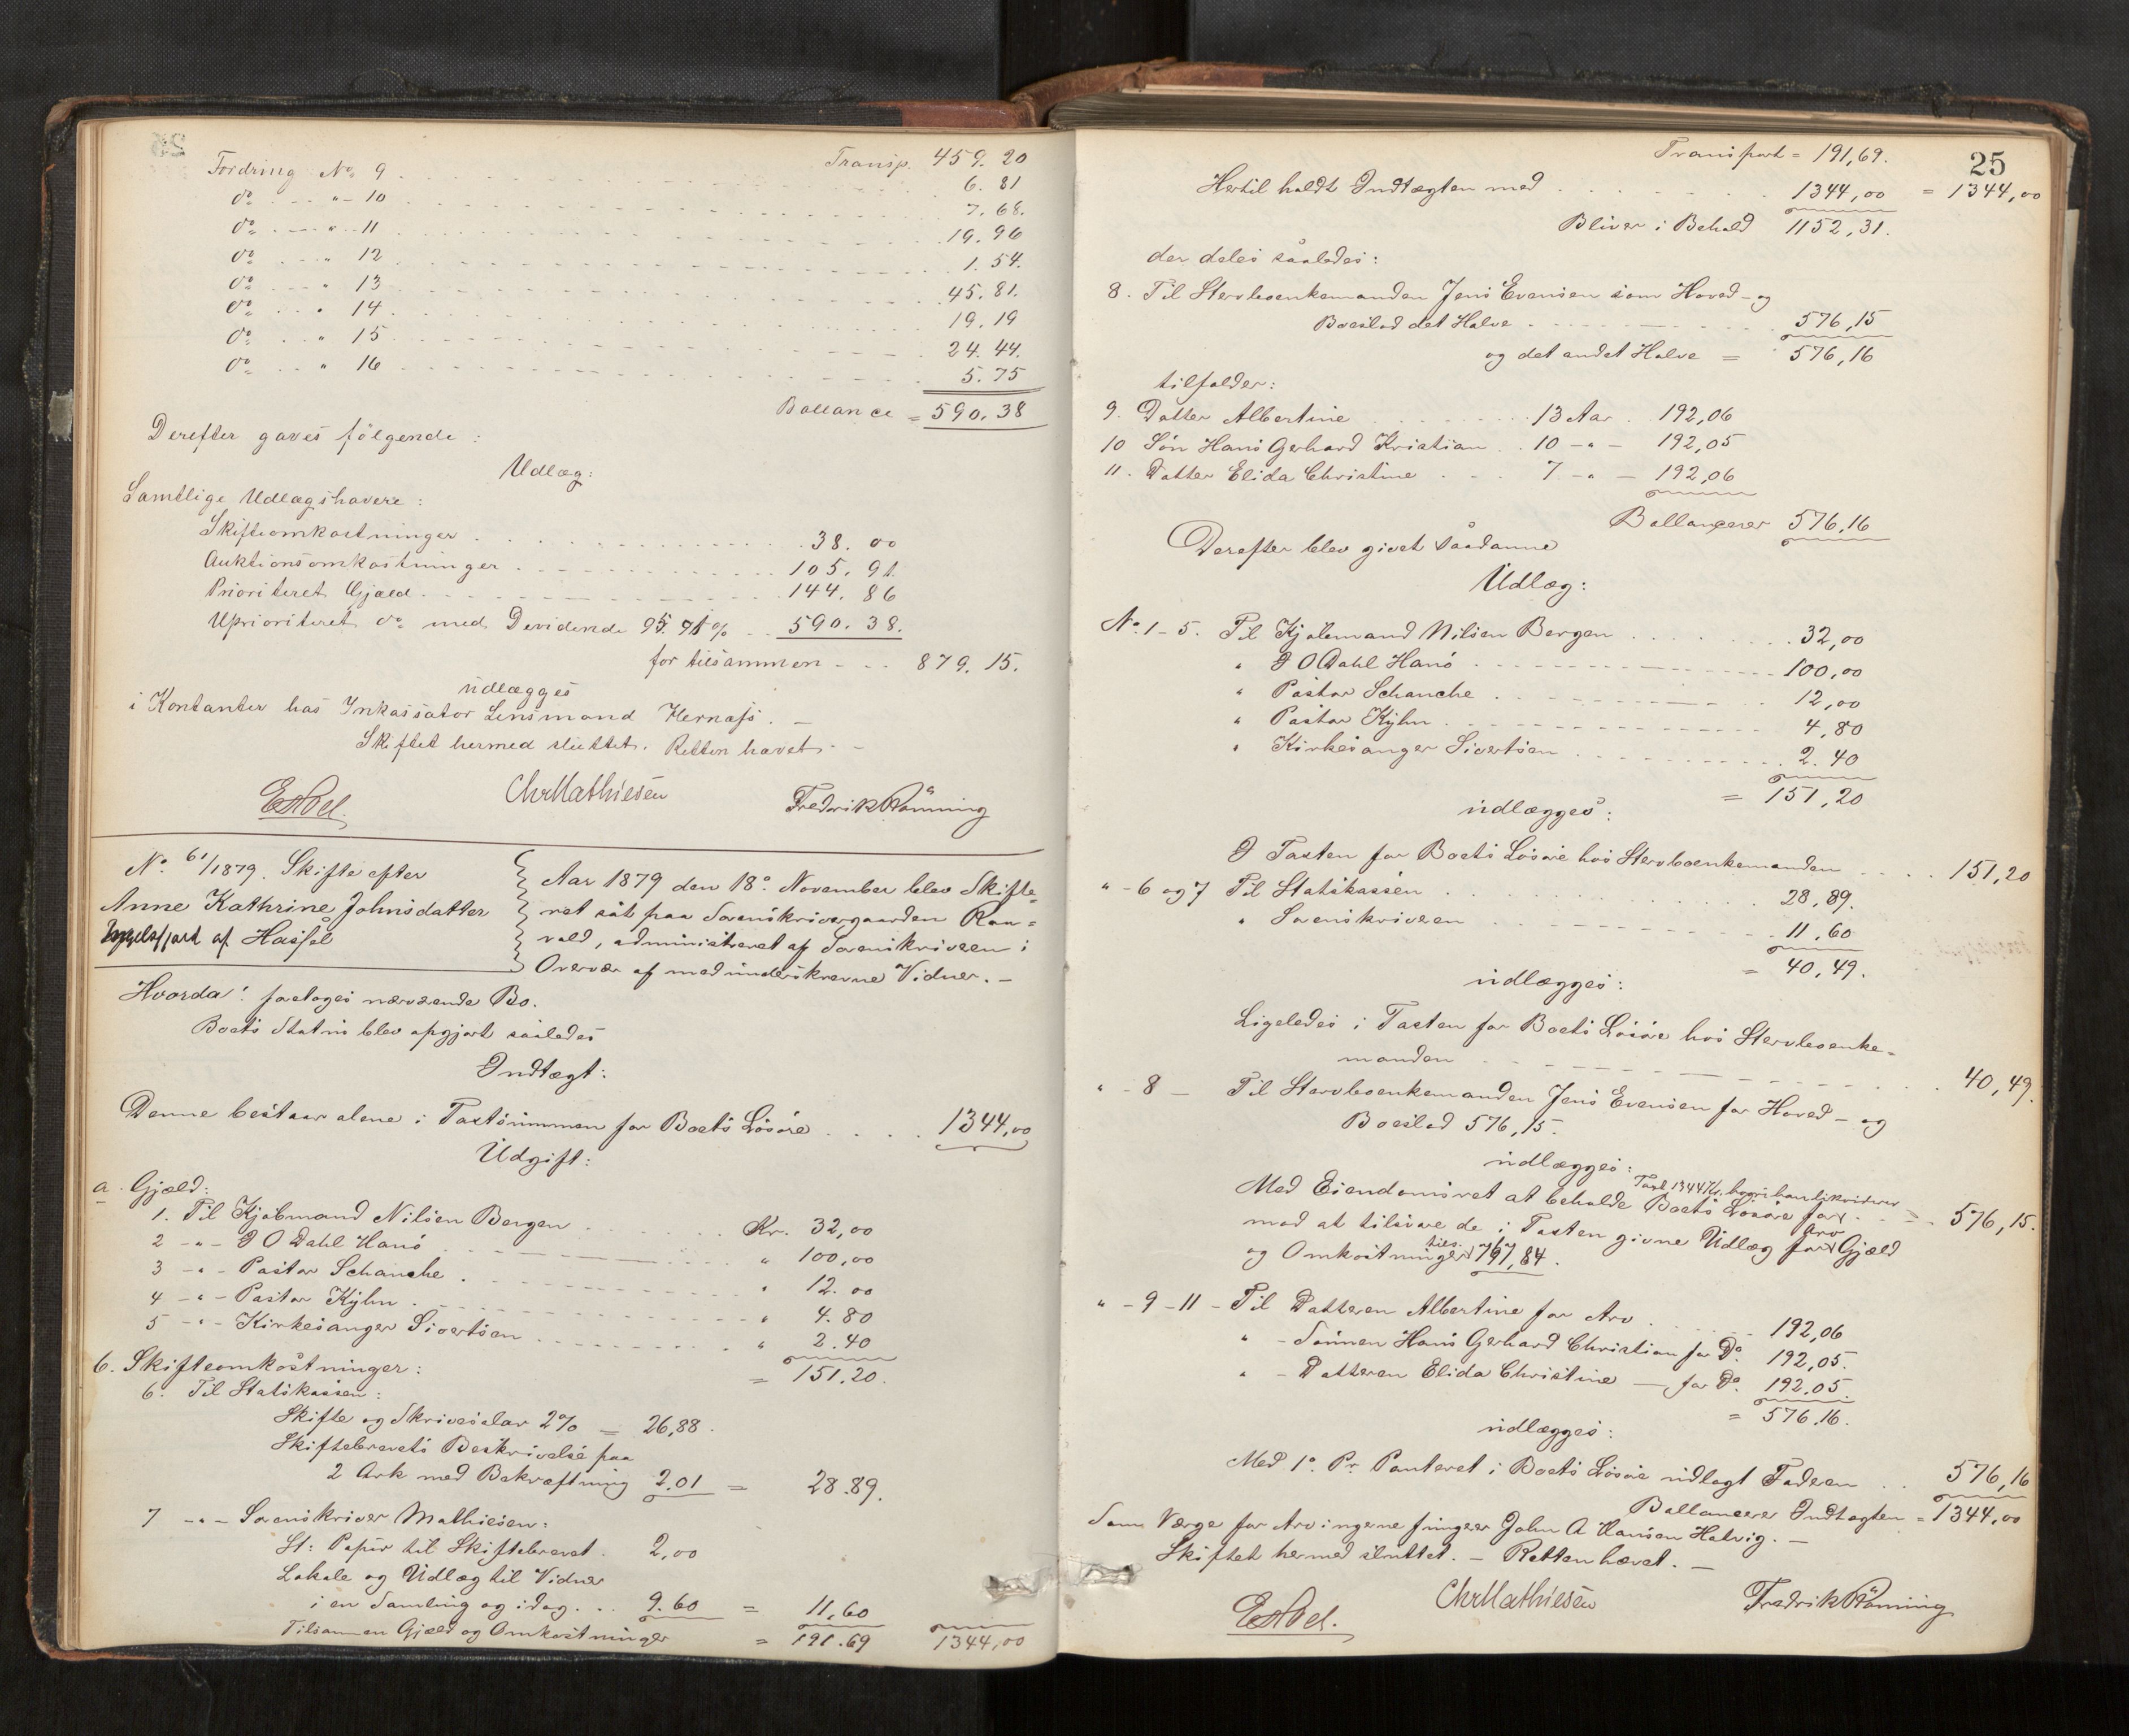 Transp. 459. 20
Fordring No 9 . . . 6. 81
do . . . " - 10 . . . 7. 68.
do . . . " . . 11 . . . 19. 96
do . . . " 12 . . . 1. 54.
do . . . " 13 . . . 45. 81.
do . . . " 14 . . . 19. 19
do . . . " 15 . . . 24. 44.
do . . . " 16 . . . 5. 75
Ballance = 590. 38
Derefter gaves følgende :
Udlæg:
Samtlige Udlægshavere :
Skifteomkostninger . . . 38. 00
Auktionsomkostninger . . . 105. 91.
Prioriteret Gjæld . . . 144. 86
Uprioriteret do med Devidende 95. 71 % . . 590. 38.
for tilsammen - . . 879. 15.
udlægges
i Kontanter hos Inkassator Lensmand Hernæss. —
Skiftet hermed sluttet. Retten hævet. —
ChrMathiesen
Fredrik Rønning
No 61/1879. Skifte efter
Anne Kathrine Johnsdatter
af Hassel
Aar 1879 den 18o November blev Skifte-
ret sat paa Sorenskrivergaarden Ran-
vald, administreret af Sorenskriveren i
Overvær af medunderskrevne Vidner. —
Hvorda: foretoges nærværende Bo.
Boets Status blev opgjort saaledes
Indtægt:
Denne bestaar alene i Taxtsummen for Boets Løsøre . . . . 1344,00
Udgift:
a. Gjæld:
1. Til Kjøbmand Nilsen Bergen . . . Kr. 32,00
2 - " - I O Dahl Hansø . . . " 100,00
3 - " - Pastor Schanche . . . " 12. 00
4 - " - Pastor Kyhn . . . " 4. 80
5 - " - Kirkesanger Sivertsen . . . " 2. 40
= 151. 20.
b. Skifteomkostninger :
6. Til Statskassen :
Skifte og Skriversalær 2% = 26,88.
Skiftebrevets Beskrivelse paa
2 Ark med Bekræftning 2.01 = 28. 89.
7 - " - Sorenskriver Mathiesen:
St: Papir til Skiftebrevet . 2,00
Lokale og Udlæg til Vidner
i en Samling og idag . . 9. 60 = 11,60
Tilsammen Gjæld og Omkostninger = 191. 69 1344,00
25
Transport = 191,69.
Hertil holdt Indtægten med . . . 1344,00 = 1344,00
Bliver i Behold 1152,31.
der deles saaledes :
8. Til Stervboenkemanden Jens Evensen som Hoved- og
Boeslod det Halve . . . 576,15
og det andet Halve = 576,16
tilfalder:
9. Datter Albertine . . . 13 Aar . 192,06
10 Søn Hans Gerhard Kristian . . 10 - " - 192,05
11. Datter Elida Christine . . . 7 - " - 192,06
Ballancerer 576,16
Derefter blev givet saadanne
Udlæg:
No. 1 - 5. Til Kjøbmand Nilsen Bergen . . . 32,00
" I O Dahl Hansø . . . 100,00
" Pastor Schanche . . . 12,00
" Pastor Kyhn . . . 4,80
" Kirkesanger Sivertsen . . . 2. 40
= 151,20
udlægges :
I Taxten for Boets Løsøre hos Stervboenkemanden . . . 151,20
" - 6 og 7 Til Statskassen . . . 28,89.
" Sorenskriveren . . . 11,60
= 40,49.
udlægges :
Ligeledes i Taxten for Boets Løsøre hos Stervboenke-
manden . . . 40,49.
" - 8 — Til Stervboenkemanden Jens Evensen for Hoved- og
Boeslod 576,15.
udlægges :
Taxt 1344 Kr. hvori han likviderer
Med Eiendomsret at beholde Boets Løsøre for . . . 576,15.
mod at tilsvare de i Taxten givne Udlæg for Arv Gjæld
og Omkostninger tils. 767,84.
" - 9 - 11 - Til Datteren Albertine for Arv . . . 192,06
" - Sønnen Hans Gerhard Christian for Do 192,05.
" - Datteren Elida Christine — for Do. 192.05.
= 576.16.
udlægges :
Med 1o Pr. Panteret i Boets Løsøre udlagt Faderen . . 576,16
Ballancerer Indtægten = 1344,00
Som Værge for Arvingerne fungerer John A Hansen Helvig. —
Skiftet hermed sluttet. — Retten hævet. —
ChrMathiesen
Fredrik Rønning